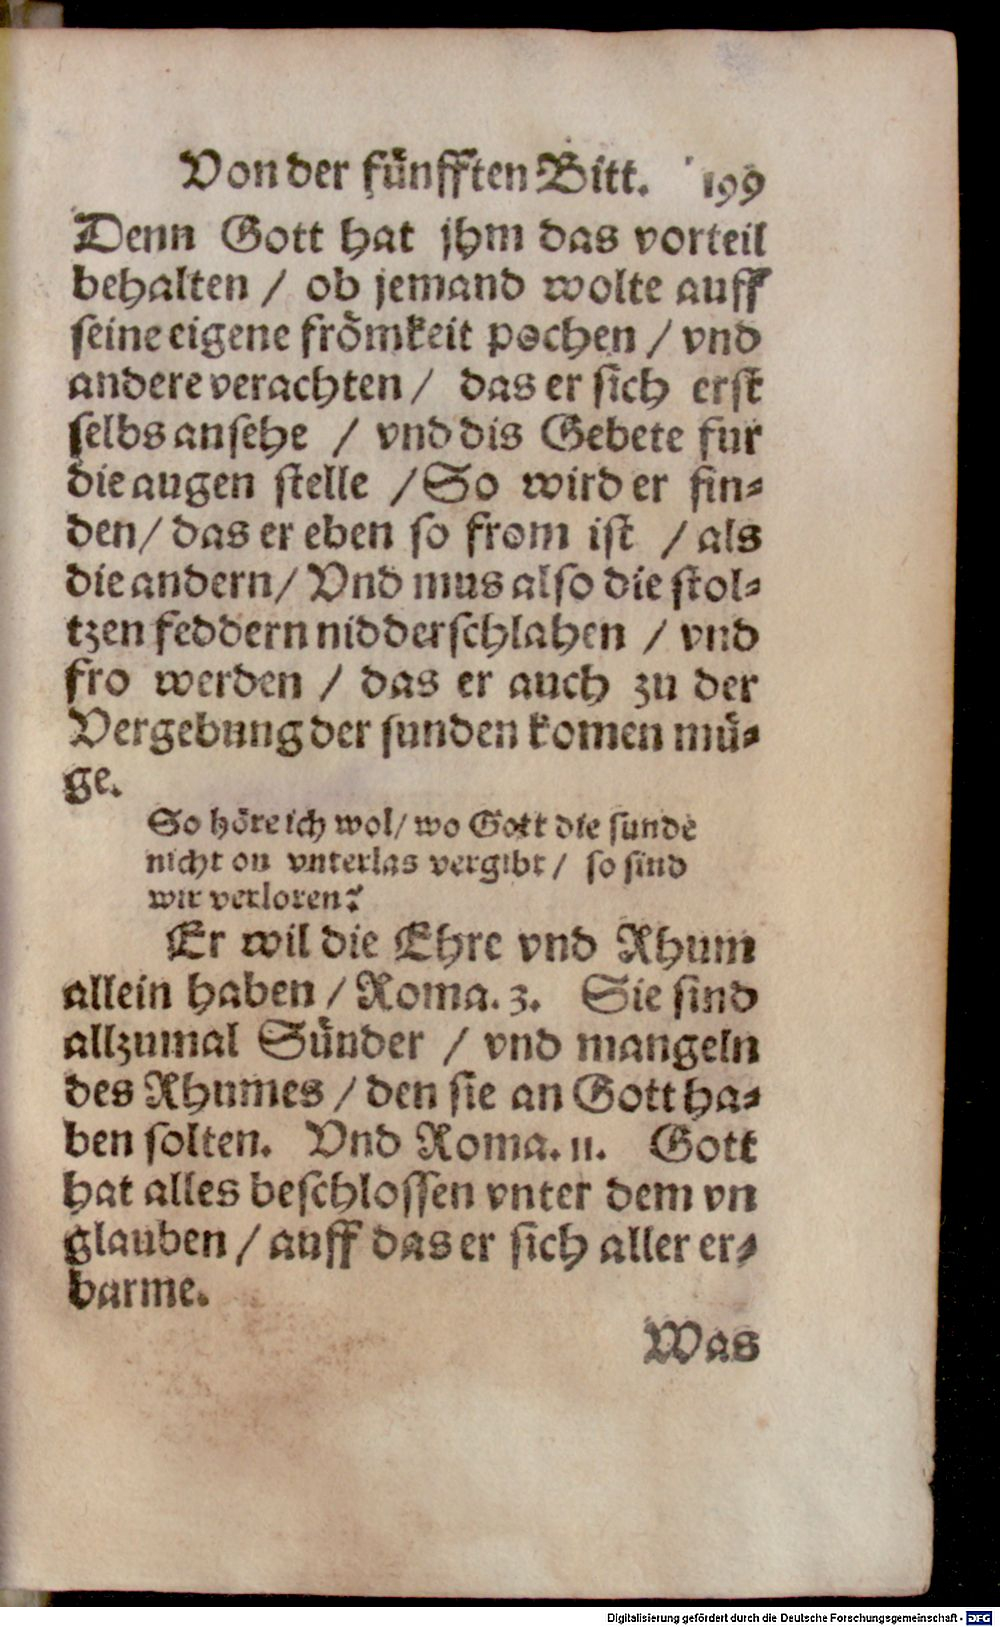 Von der fünfften Bitt. 199
Denn Gott hat jhm das vorteil
behalten / ob jemand wolte auff
seine eigene frömkeit pochen / vnd
andere verachten / das er sich erst
selbs ansehe / vnd dis Gebete fur
die augen stelle / So wird er fin-
den / das er eben so from ist / als
die andern / Vnd mus also die stol-
tzen feddern nidderschlahen / vnd
fro werden / das er auch zu der
Vergebung der sunden komen mü-
ge.
So höre ich wol / wo Gott die sunde
nicht on vnterlas vergibt / so sind
wir verloren?
Er wil die Ehre vnd Rhum
allein haben / Roma. 3. Sie sind
allzumal Sünder / vnd mangeln
des Rhumes / den sie an Gott ha-
ben solten. Vnd Roma. 11. Gott
hat alles beschlossen vnter dem vn
glauben / auff das er sich aller er-
barme.
Was
Digitalisierung gefördert durch die Deutsche Forschungsgemeinschaft - DFG